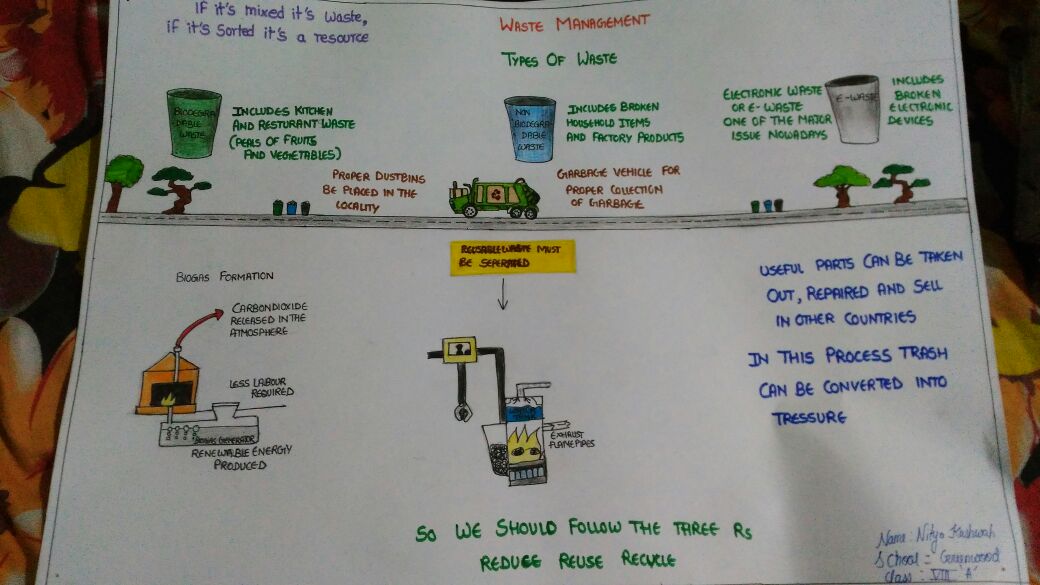 If it's mixed it's waste,
if it's sorted it's a resource
WASTE MANAGEMENT
TYPES OF WASTE
BIODEGRA
DABLE
WASTE
INCLUDES KITCHEN
AND RESTURANT WASTE
(PEALS OF FRUITS
AND VEGETABLES)
NON
BIODEGRA
DABLE
WASTE
INCLUDES BROKEN
HOUSEHOLD ITEMS
AND FACTORY PRODUCTS
ELECTRONIC WASTE
OR E-WASTE
ONE OF THE MAJOR
ISSUE NOWADAYS
E-WASTE
INCLUDES
BROKEN
ELECTRONIC
DEVICES
PROPER DUSTBINS
BE PLACED IN THE
LOCALITY
GARBAGE VEHICLE FOR
PROPER COLLECTION
OF GARBAGE
REUSABLE WASTE MUST
BE SEPERATED
BIOGAS FORMATION
CARBONDIOXIDE
RELEASED IN THE
ATMOSPHERE
LESS LABOUR
REQUIRED
BIOGAS GENERATOR
RENEWABLE ENERGIY
PRODUCED
EXHAUST
PIPES
USEFUL PARTS CAN BE TAKEN
OUT, REPAIRED AND SELL
IN OTHER COUNTRIES
IN THIS PROCESS TRASH
CAN BE CONVERTED INTO
TRESSURE
SO WE SHOULD FOLLOW THE THREE Rs
REDUCE REUSE RECYCLE
Name: Nitya Kushwah
School = Greenwood
Class : VIII 'A'